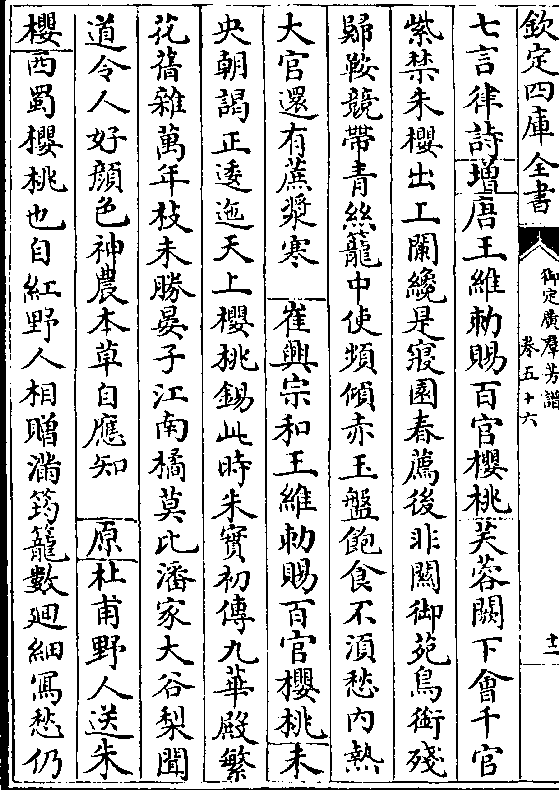 欽定四庫全書
御定廣羣芳譜
卷五十六
十二
七言律詩增唐王維勅賜百官櫻桃芙蓉闕下會千官
紫禁朱櫻出上闌纔是寢園春薦後非關御苑鳥銜殘
歸鞍競帶青絲籠中使頻傾赤玉盤飽食不湏愁内熱
大官還有蔗漿寒 崔興宗和王維勅賜百官櫻桃未
央朝謁正逶迤天上櫻桃錫此時朱實初傳九華殿繁
花舊雜萬年枝未勝晏子江南橘莫比潘家大谷梨聞
道令人好顔色神農本草自應知 原杜甫野人送朱
櫻西蜀櫻桃也自紅野人相贈滿筠籠數廻細寫愁仍